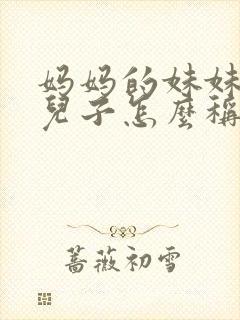 妈妈的妹妹
兒子怎麼稱
蔷薇初雪